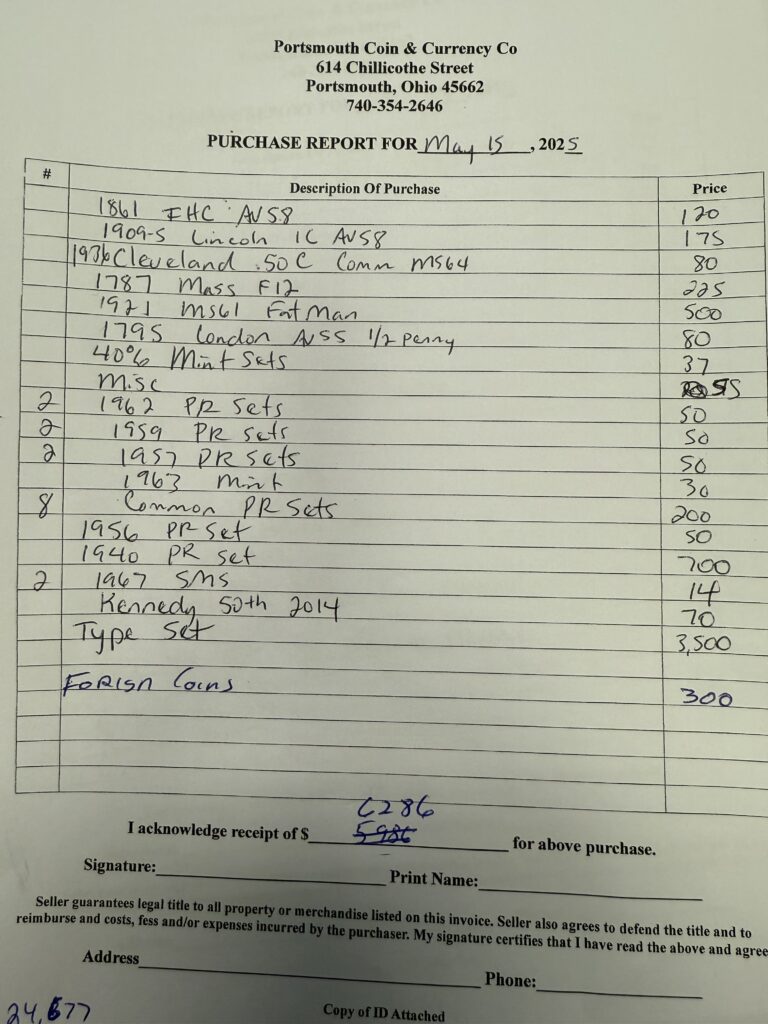 Portsmouth Coin & Currency Co
614 Chillicothe Street
Portsmouth, Ohio 45662
740-354-2646
PURCHASE REPORT FOR May 15, 2025
# Description Of Purchase Price
1861 IHC AU58 120
1909-S Lincoln 1C AU58 175
1936 Cleveland .50C Comm MS64 80
1787 Mass F12 225
1921 MS61 Fat Man 500
1795 London AU55 1/2 Penny 80
40% Mint Sets 37
Misc 55
2 1962 PR Sets 50
2 1959 PR Sets 50
2 1957 PR Sets 50
1963 Mint 30
8 Common PR Sets 200
1956 PR Set 50
1940 PR Set 700
2 1967 SMS 14
Kennedy 50th 2014 70
Type Set 3,500
Forign Coins 300
6286
I acknowledge receipt of $ 5986 for above purchase.
Signature: Print Name:
Seller guarantees legal title to all property or merchandise listed on this invoice. Seller also agrees to defend the title and to
reimburse and costs, fess and/or expenses incurred by the purchaser. My signature certifies that I have read the above and agree
Address Phone:
Copy of ID Attached
24,677